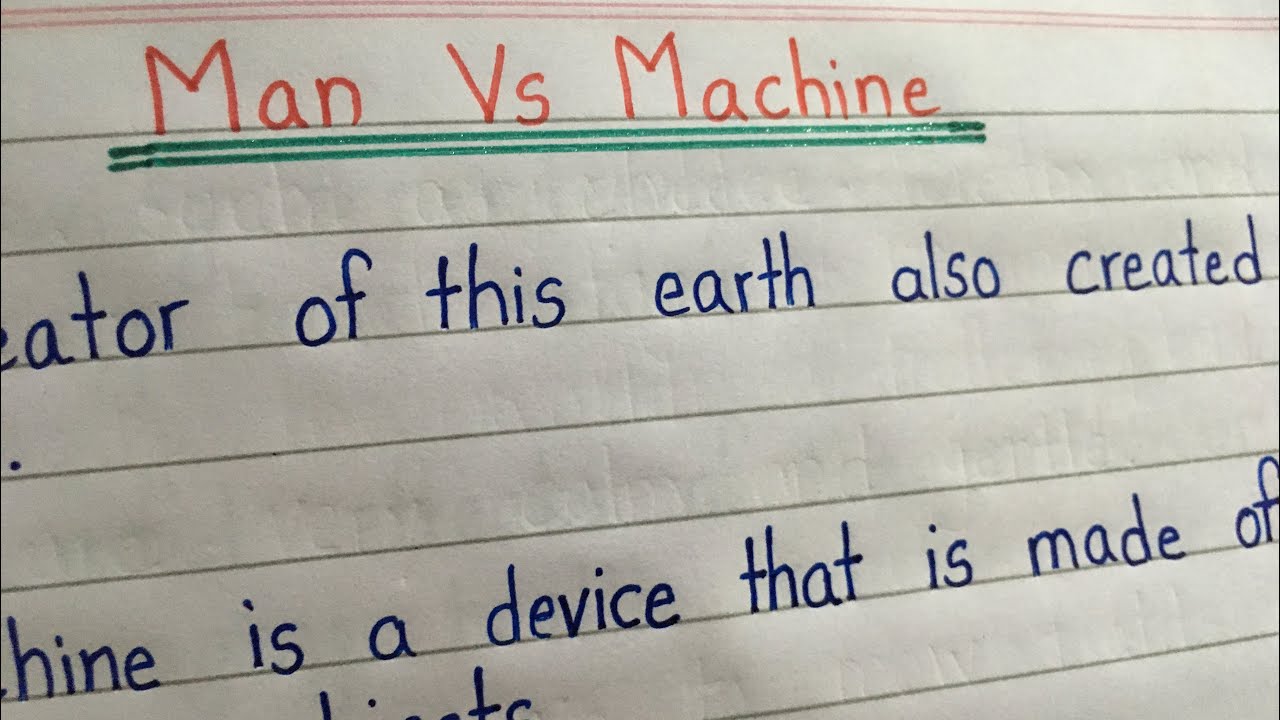 Man Vs Machine
eator of this earth also created
.
hine is a device that is made of